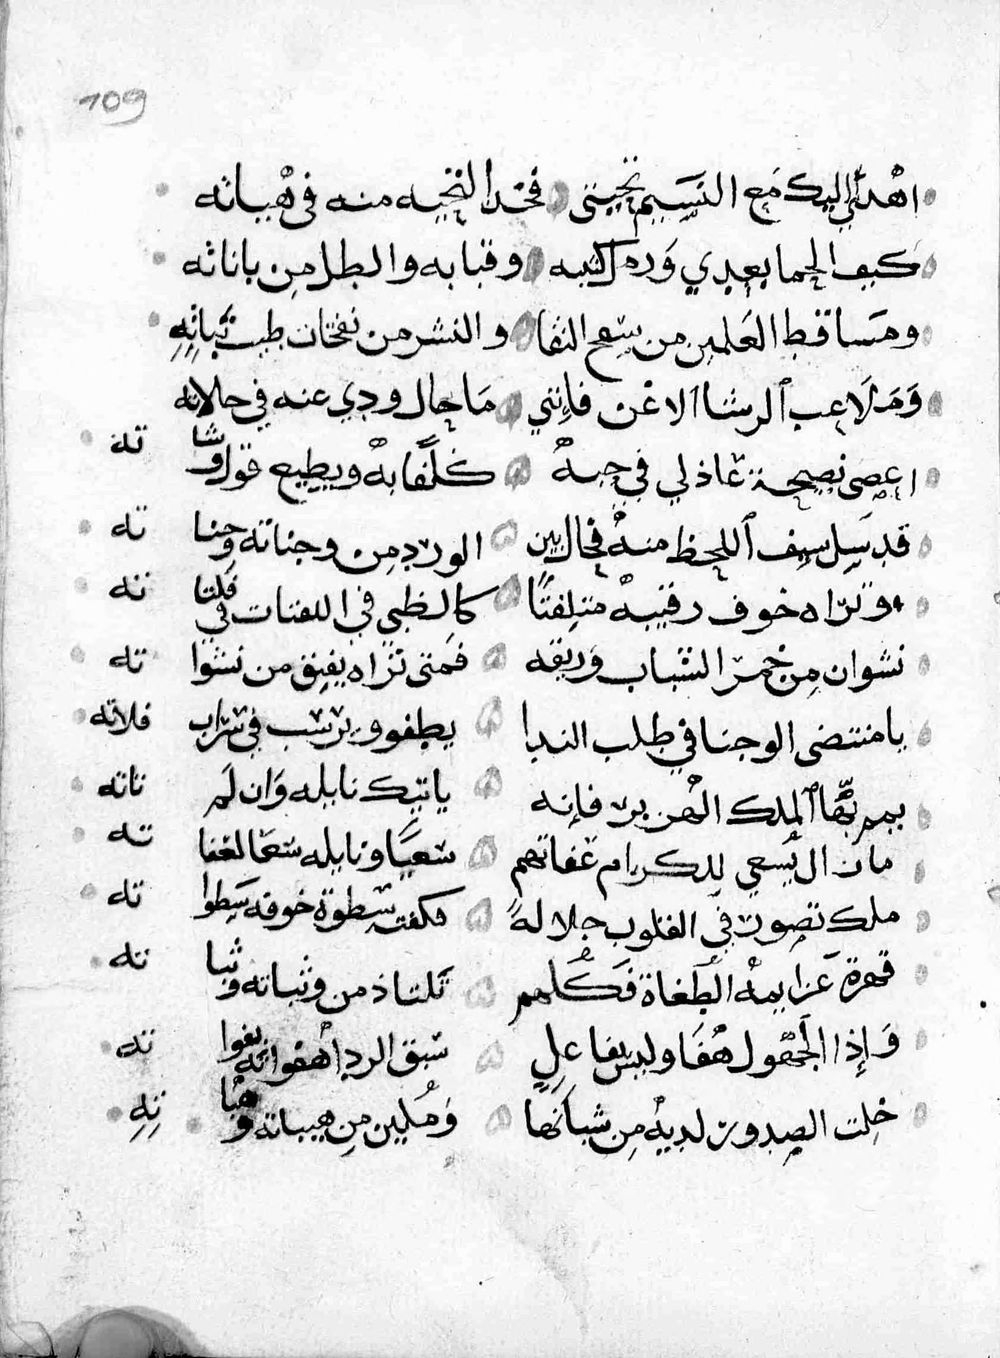 109
اهدى اليك مع النسيم تحيتى فخذ التحيه منه فى هباته
كيف الحما بعدي ورمل كثيبه وقبابه والطل من باناته
ومساقط العلمين من سفح النقا والنشر من نفحات طيب نباتِهِ
وَمَلَاعِب الرشا الاغن فإنني مَا حال ودي عنه في حالاته
اعصى نصيحة عاذلي في حبهْ كلَفًا بهْ ويطيع قول وشا ته
قد سل سيف اللحظ منهْ فحال بين الورد من وجناته وجنا ته
وتراه خوف رقيبهْ متلفتًا كالظبي في اللفتات في فلتا ته
نشوان من خمر الشباب وريقه فمتى تراه يفيق من نشوا ته
يا منتضى الوجنا في طلب الندا يطفو ويرسب في سراب فلاته
يمم بها الملك الهزبر فإنه ياتيك نايله وَان لَم تاته
ما زال يسعي للكرام عفاتهم سعيًا ونايله سعا لعفا ته
ملك تصور في القلوب جلالهً فكفته سطوة خوفه سَطوا ته
قهرة عزايمهْ الطغاة فَكُلهم تلتاذ من وثباته وثبا ته
وَإِذا الجَهُول هَفَا وليس بفاعلٍ سبق الردا هفواته بفوا ته
خلت الصدور لديهْ من شبانها وَمُلين من هيباته وهبا تِهِ